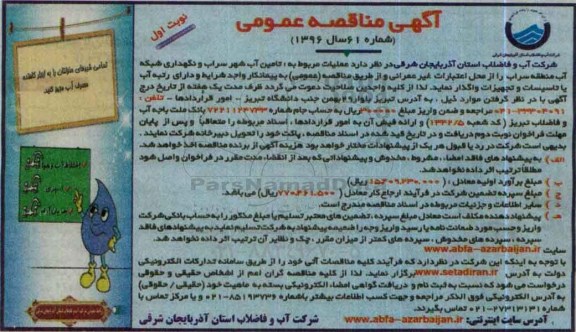 آگهی مناقصه عمومی
(شماره ۶۱ سال ۱۳۹۶)
نوبت اول
شرکت آب و فاضلاب استان آذربایجان شرقی در نظر دارد عملیات مربوط به : تامین آب شهر سراب و نگهداری شبکه
آب منطقه سراب را از محل اعتبارات غیر عمرانی و از طریق مناقصه (عمومی) به پیمانکار واجد شرایط و دارای رتبه آب
یا تاسیسات و تجهیزات واگذار نماید. لذا از کلیه واجدین صلاحیت دعوت می گردد ظرف مدت یک هفته از تاریخ درج
آگهی با در نظر گرفتن موارد ذیل ، به آدرس تبریز بلوار ۲۹ بهمن جنب دانشگاه تبریز – امور قراردادها – تلفن :
مهلت فراخوان نوبت دوم دریافت و در تاریخ قید شده در اسناد مناقصه ، پاکت خود را تحویل دبیرخانه شرکت نمایند .
بدیهی است شرکت در رد یا قبول هر یک از پیشنهادات مختار خواهد بود هزینه آگهی از برنده مناقصه اخذ خواهد شد.
الف) به پیشنهادهای فاقد امضاء ، مشروط ، مخدوش و پیشنهاداتی که بعد از انقضاء مدت مقرر در فراخوان واصل شود
مطلقا ترتیب اثر داده نخواهد شد.
ب) مبلغ برآورد اولیه معادل :
ج) مبلغ سپرده تضمین شرکت در فرآیند ارجاع کار معادل
د) سایر اطلاعات و جزئیات مربوطه در اسناد مناقصه مندرج است.
ه) پیشنهاد دهنده مکلف است معادل مبلغ سپرده ، تضمین های معتبر تسلیم یا مبلغ مذکور را به حساب بانکی شرکت
واریز و حسب مورد ضمانت نامه یا رسید واریز وجه را ضمیمه پیشنهاد به شرکت تسلیم نماید به پیشنهادهای فاقد
سپرده سپرده های مخدوش ، سپرده های کمتر از میزان مقرر ، چک و نظایر آن ترتیب اثر داده نخواهد شد.
سایت www.abfa-azarbaijan.ir
با توجه به اینکه این شرکت در نظر دارد که فرآیند کلیه مناقصات آتی خود را از طریق سامانه تدارکات الکترونیکی
دولت به آدرس www.setadiran.ir برگزار نماید، لذا از کلیه مناقصه گران اعم از اشخاص حقیقی و حقوقی
درخواست می شود که نسبت به ثبت نام و دریافت گواهی امضاء الکترونیکی بسته به ماهیت خود (حقیقی / حقوقی)
به آدرس الکترونیکی فوق الذکر مراجعه و جهت کسب اطلاعات بیشتر با شماره ۰۲۱-۸۵۱۹۳۷۳۶ و یا مرکز تماس با
شماره ۰۲۱-۲۷۳۱۳۱۳۱ تماس بگیرند.
آدرس سایت اینترنتی: www.abfa-azarbaijan.ir
شرکت آب و فاضلاب استان آذربایجان شرقی